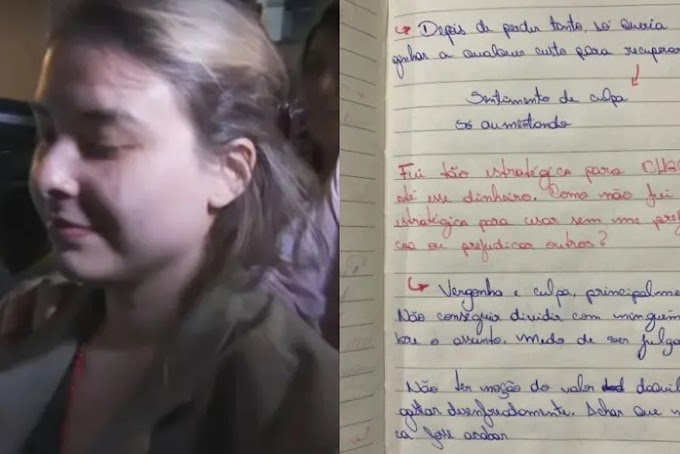 ↳ Depois de perder tanto, só queria
ganhar a qualquer custo para recuperar
Sentimento de culpa
só aumentando
Fui tão estratégica para
até esse dinheiro. Como não fui
estratégica para usar sem me
ou prejudicar outros?
↳ Vergonha e culpa,
Não conseguia dividir com
o assunto. Medo de ser
Não ter noção do valor
gastar desenfreadamente. Achar que